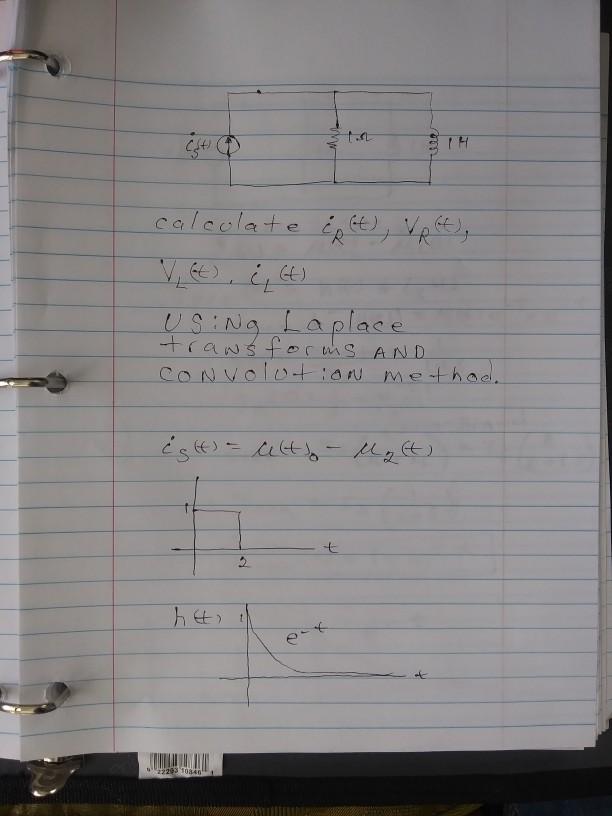 is(t) 1Ω 1H
calculate iR(t), VR(t),
VL(t), iL(t)
USiNg Laplace
transforms AND
CONVOLUTION method.
is(t) = μ(t)0 - μ2(t)
1
2 t
h(t) 1 e-t
t